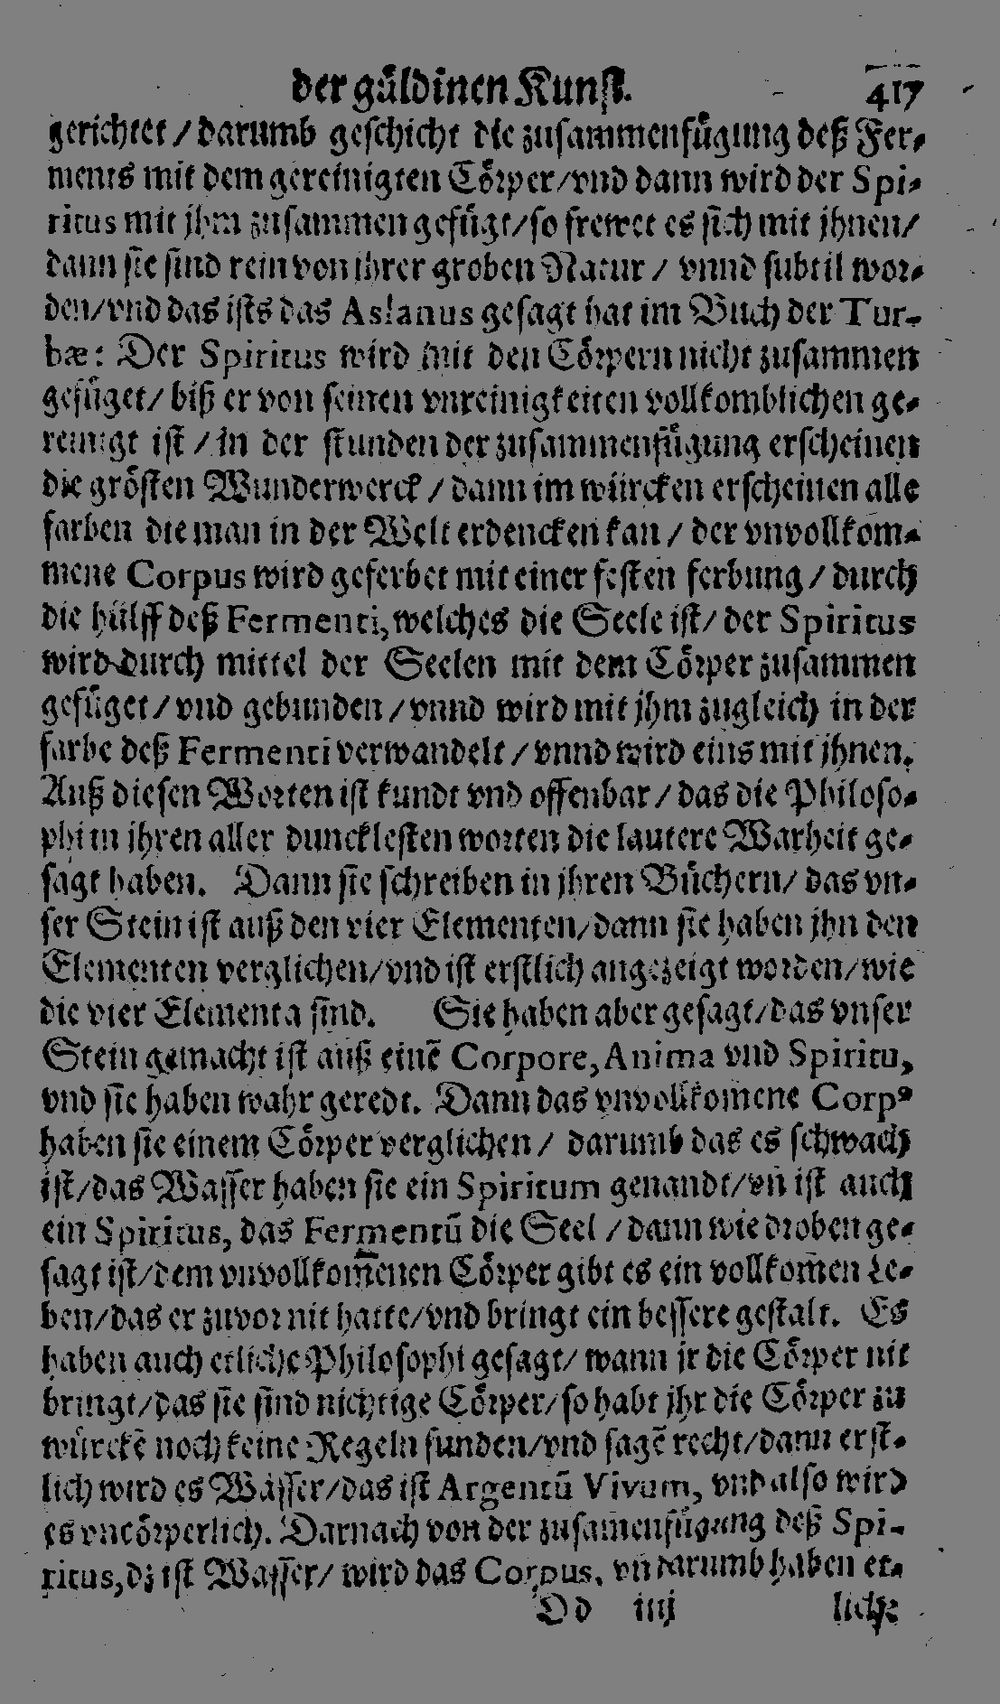 der guͤldinen Kunst. 417
gerichtet / darumb geschicht die zusammenfuͤgung deß Fer⸗
ments mit dem gereinigten Coͤrper/vnd dann wird der Spi⸗
ritus mit jhm zusammen gefuͤgt/so frewet es sich mit jhnen/
dann sie sind rein von jhrer groben Natur / vnnd subtil wor⸗
den/vnd das ists das Aslanus gesagt hat im Buch der Tur-
bæ: Der Spiritus wird mit den Coͤrpern nicht zusammen
gefuͤget/ biß er von seinen vnreinigkeiten vollkomblichen ge⸗
reinigt ist / in der stunden der zusammenfuͤgung erscheinen
die groͤsten Wunderwerck / dann im wuͤrcken erscheinen alle
farben die man in der Welt erdencken kan / der vnvollkom⸗
mene Corpus wird geferbet mit einer festen ferbung / durch
die huͤlff deß Fermenti, welches die Seele ist/ der Spiritus
wird durch mittel der Seelen mit dem Coͤrper zusammen
gefuͤget / vnd gebunden / vnnd wird mit jhm zugleich in der
farbe deß Fermenti verwandelt / vnnd wird eins mit jhnen.
Auß diesen Worten ist kundt vnd offenbar / das die Philoso⸗
phi in jhren allerduncklesten worten die lautere Warheit ge⸗
sagt haben. Dann sie schreiben in jhren Buͤchern/ das vn⸗
ser Stein ist auß den vier Elementen/dann sie haben jhn den
Elementen verglichen/vnd ist erstlich angezeigt worden/wie
die vier Elementa sind. Sie haben aber gesagt/das vnser
Stein gemacht ist auß einē Corpore, Anima vnd Spiritu,
vnd sie haben wahr geredt. Dann das vnvollkomene Corpꝰ
haben sie einem Coͤrper verglichen / darumb das es schwach
ist/das Wasser haben sie ein Spiritum genandt/vñ ist auch
ein Spiritus, das Fermentū die Seel / dann wie droben ge⸗
sagt ist/dem vnvollkom̄enen Coͤrper gibt es ein vollkom̄en Le⸗
ben/das er zuvor nit hatte/vnd bringt ein bessere gestalt. Es
haben auch etliche Philosophi gesagt/ wann jr die Coͤrper nit
bringt/das sie sind nichtige Coͤrper/so habt jhr die Coͤrper zu
wuͤrckē noch keine Regeln funden/vnd sagē recht/dann erst⸗
lich wird es Wasser/das ist Argentū Vivum, vnd also wird
es vncoͤrperlich. Darnach von der zusam̄enfuͤgung deß Spi-
ritus,dz ist Wasser/ wird das Corpus, vñ darumb haben et⸗
Dd iiij liche